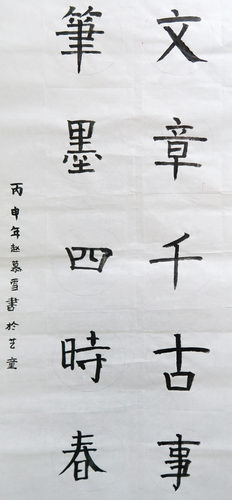 文章千古事
筆墨四時春
丙申年赵慕雪書於艺童